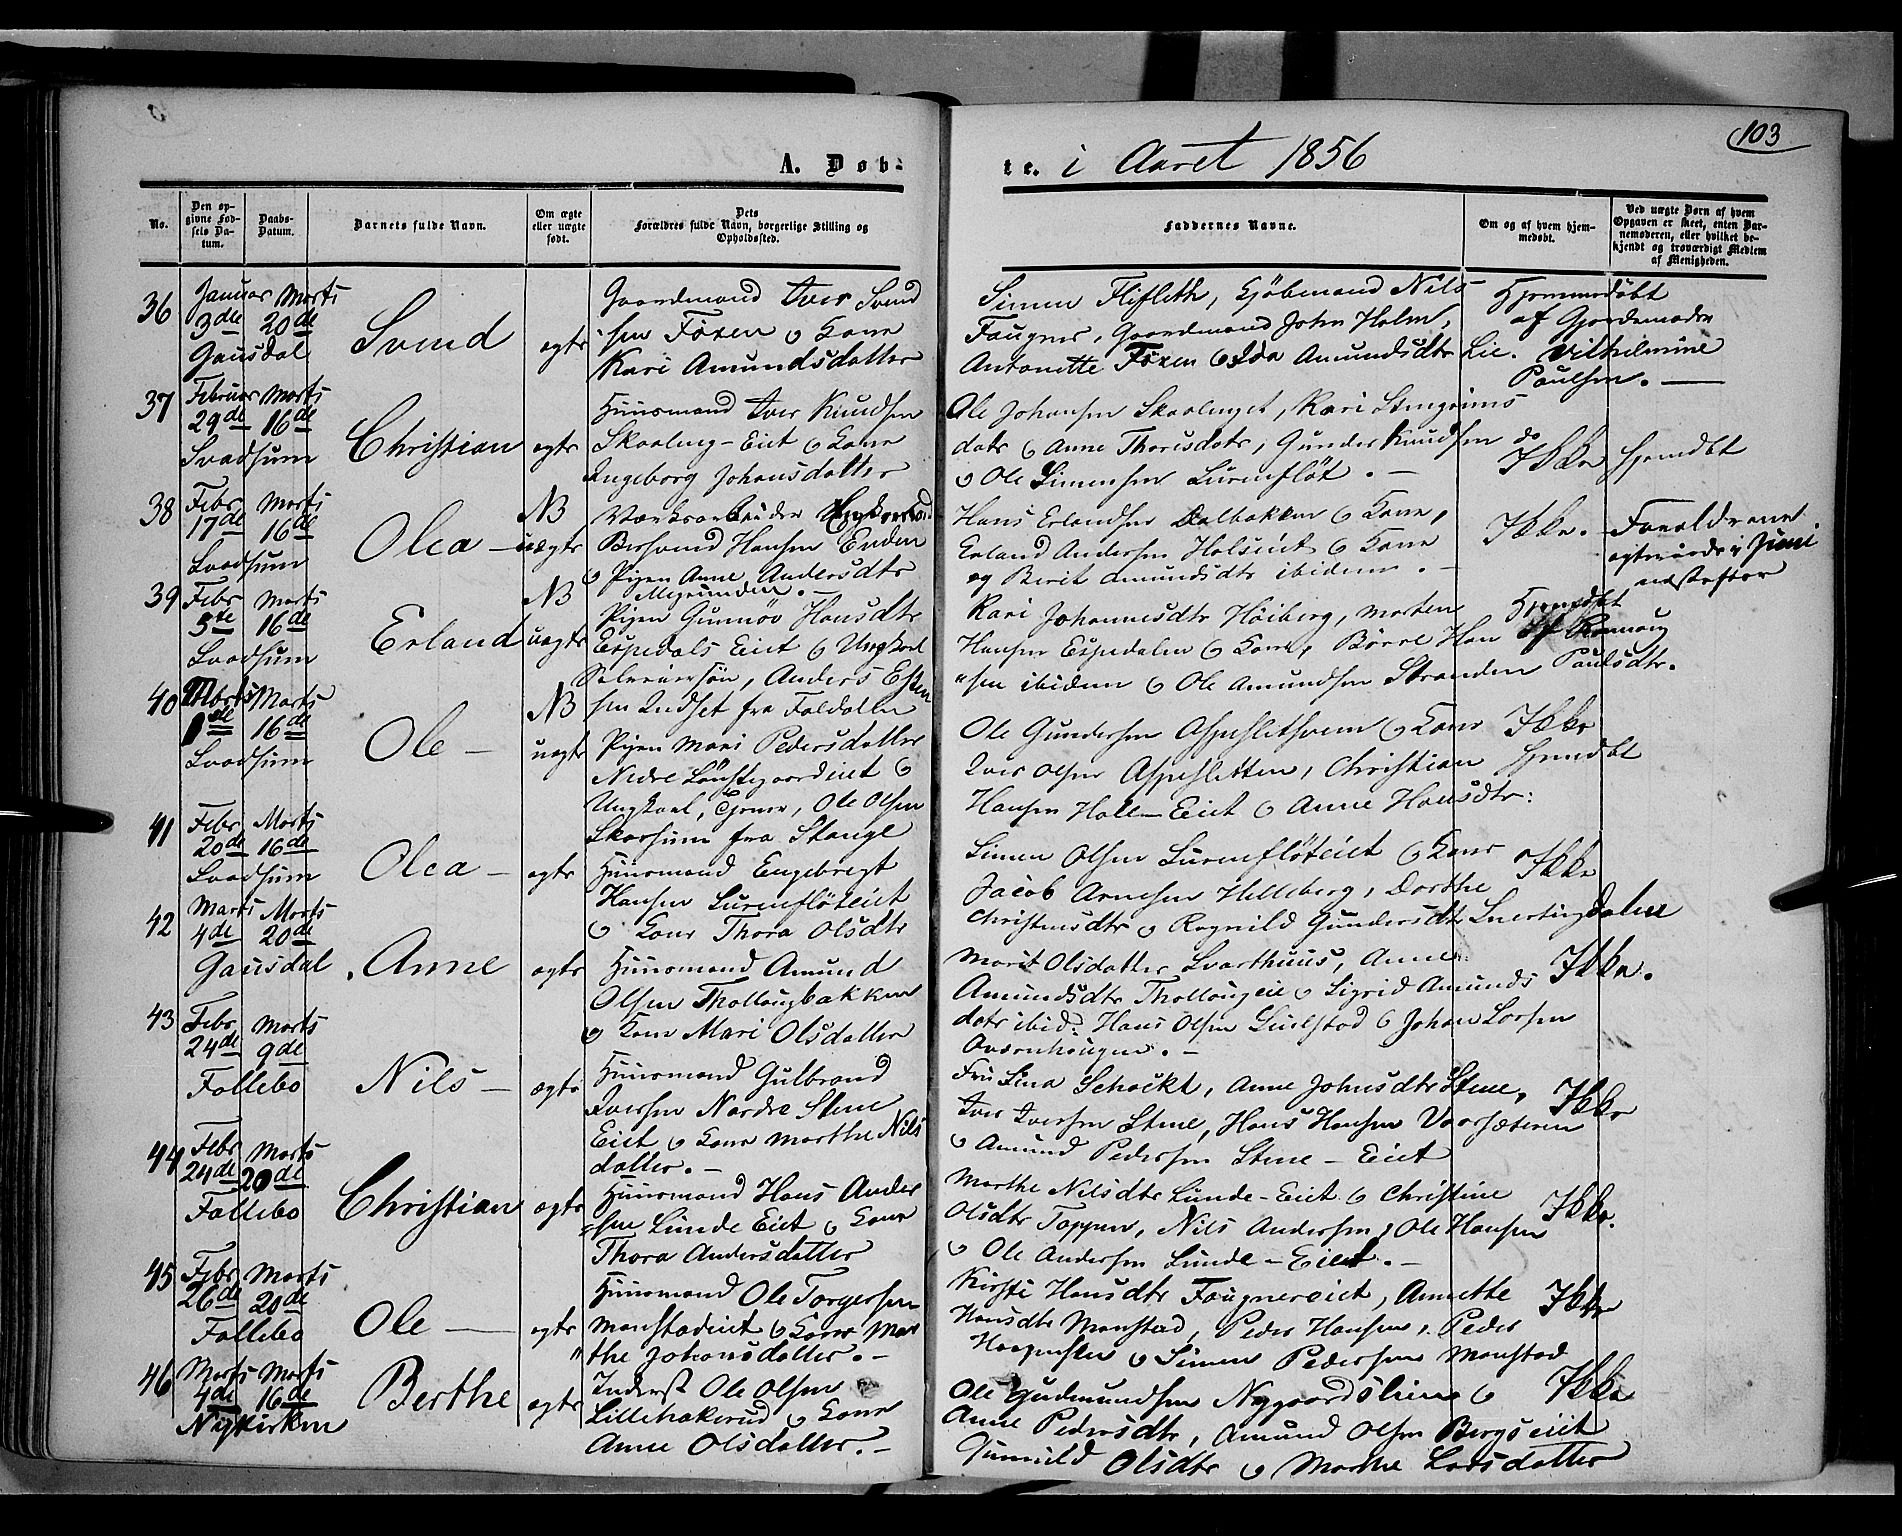 103
A. Døb-
te. i Aaret 1856
No.
Den op-
givne Fød-
sels Da-
tum.
Daabs-
Datum.
Barnets fulde Navn.
Om ægte
eller uægte
født.
Dets
Forældres fulde Navn, borgerlige Stilling og
Opholdssted.
Faddernes Navne.
Om og af hvem hjem-
medøbt.
Ved uægte Børn af hvem
Opgaven er skeet, enten Bar-
nemoderen, eller hvilket be-
kjendt og troværdigt Medlem
af Menigheden.
36
Januar Marts
3die 20de
Gausdal
Svend
ægte
Gaardmand Iver Svend
sen Foxen og Kone
Kari Amundsdatter
Simen Flifleth, Kjøbmand Nils
Faugner, Gaardmand John Holm,
Antonette Foxen og Ida Amundsdtr Lie.
Hjemmedøbt
af Gjordemoder
Vilhelmine
Paulsen. —
37
Februar Marts
29de 16de
Svadsum
Christian
ægte
Huusmand Iver Knudsen
Skaaleng-Eiet og Kone
Ingeborg Johansdatter
Ole Johansen Skaalenget, Kari Stengrims
datr og Anne Thoresdatr, Gunder Knudsen do
og Ole Simensen Lurenfløt. —
Ikke Hjemdbt
38
Febr Marts
17de 16de
Svadsum
Olea —
NB
uægte
Værksarbeider Ungkarl
Bersvend Hansen Enden
og Pigen Anne Andersdtr
Megrunden. —
Hans Erlandsen Dalbakken og Kone,
Erland Andersen Holseiet og Kone
og Berit Amundsdtr ibidem. —
Ikke.
Forældrene
ægteviede i Juni
næstefter
39
Febr Marts
5te 16de
Svadsum
Erland
NB
uægte
Pigen Gunnør Hansdtr
Espedals Eiet og Ungkarl
Selveiersøn, Anders Esten
sen Indset fra Foldalen
Kari Johannesdtr Høiberg, Morten
Hansen Espedalen og Kone, Børre Han
"sen ibidem og Ole Amundsen Stranden
Hjemdbt
af Rannoug
Paulsdtr.
40
Marts Marts
1ste 16de
Svadsum
Ole —
NB
uægte
Pigen Mari Pedersdatter
Nedre Lønstegaardeiet og
Ungkarl, Tjener, Ole Olsen
Skarsum fra Stange
Ole Gundersen Aspeslethvem og Kone
Iver Olsen Aspesletten, Christian
Hansen Holl-Eiet og Anne Hansdtr:
Ikke
Hjemdbt
41
Febr Marts
20de 16de
Svadsum
Olea —
ægte
Huusmand Engebregt
Hansen Lurenfløteiet
og Kone Thora Olsdtr
Simen Olsen Lurenfløteiet og Kone
Jacob Arnesen Helleberg, Dorthe
Christensdtr og Ragnild Gundersdtr Snertingdalen
Ikke
42
Marts Marts
4de 20de
Gausdal
Anne
ægte
Huusmand Amund
Olsen Thollougbakken
og Kone Mari Olsdatter
Marit Olsdatter Svarthuus, Anne
Amundsdtr Thollougeie og Sigrid Amunds
datr ibid: Hans Olsen Linlstad og Johan Larsen
Aavernhougen. —
Ikke.
43
Febr Marts
24de 9de
Follebo
Nils —
ægte
Huusmand Gulbrand
Iversen Nordre Stene
Eiet og Kone Marthe Nils
datter. —
Fru Lina Schackt, Anne Johnsdtr Stene,
Iver Iversen Stene, Hans Hansen Vaarsæteren
og Amund Pedersen Stene-Eiet
Ikke
44
Febr Marts
24de 20de
Follebo
Christian
ægte
Huusmand Hans Ander
"sen Linde Eiet og Kone
Thora Andersdatter
Marthe Nilsdtr Linde-Eiet og Christine
Olsdtr Toppen, Nils Andersen, Ole Hansen
og Ole Andersen Linde-Eiet. —
Ikke.
45
Febr Marts
26de 20de
Follebo
Ole —
ægte
Huusmand Ole Torgersen
Monstadeiet og Kone Mar
"the Johansdatter. —
Kirsti Hansdtr Faugnereiet, Annette
Hansdtr Monstad, Peder Hansen, Peder
Haagensen og Simen Pedersen Monstad
Ikke
46
Marts Marts
4de 16de
Nykirken
Berthe
ægte
Inderst Ole Olsen
Lillehakerud og Kone
Anne Olsdatter. —
Ole Gudmundsen Nygaardslien og
Anne Pedersdtr, Amund Olsen Bergseiet
Gunnild Olsdtr og Marthe Larsdatter
Ikke